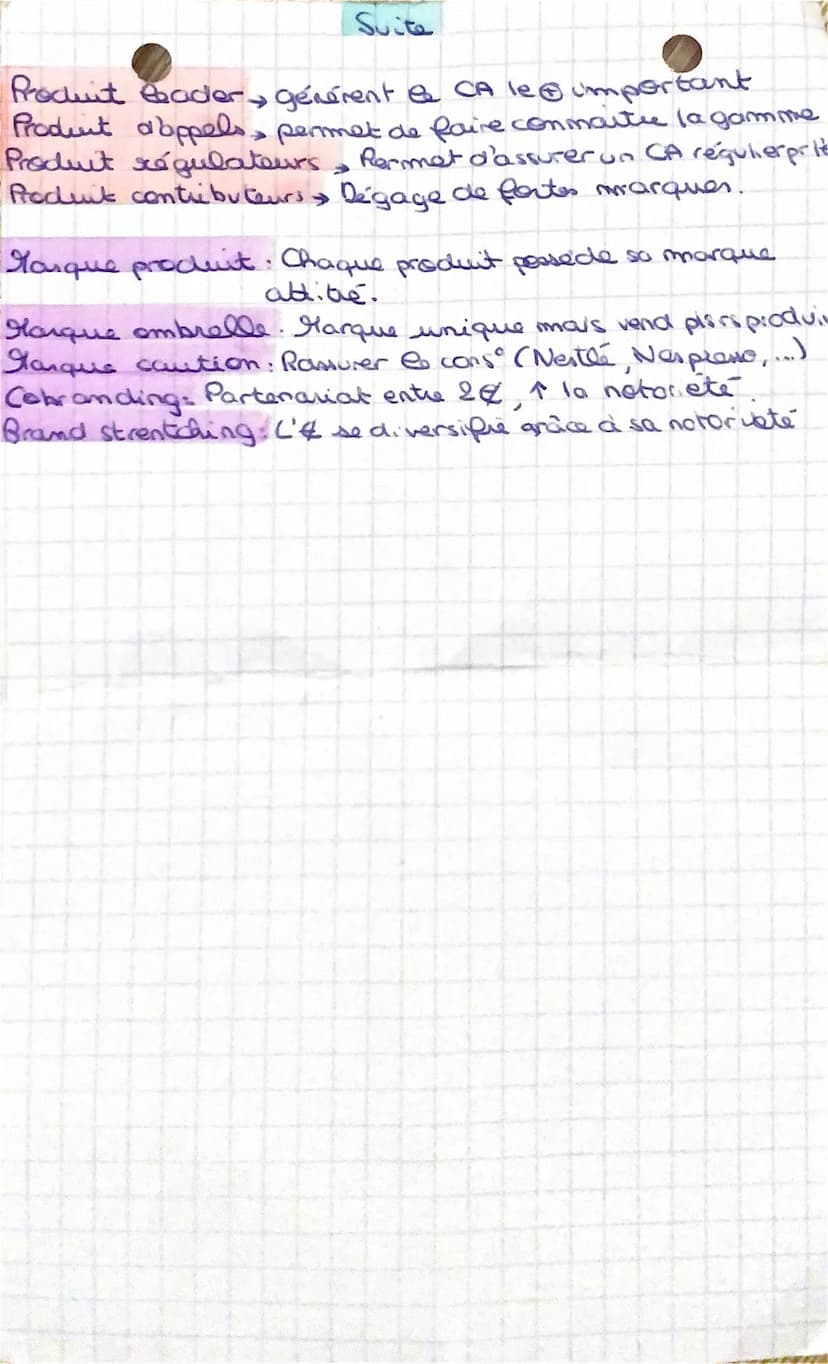 Suite
Produit leader → générent le CA le ⊕ important
Produit d'appels → permet de faire connaitre la gamme
Produit régulateurs → Permet d'assurer un CA régulier
Produit contributeurs → Dégage de fortes marques.
Marque produit : Chaque produit possède sa marque
attitré.
Marque ombrelle : Marque unique mais vend plsrs produi
Marque caution : Rassurer les cons° (Nestlé, Nespresso, ...)
Cobranding : Partenariat entre 2 , ↑ la notoriété.
Brand strentching : L' se diversifie grâce à sa notorivété